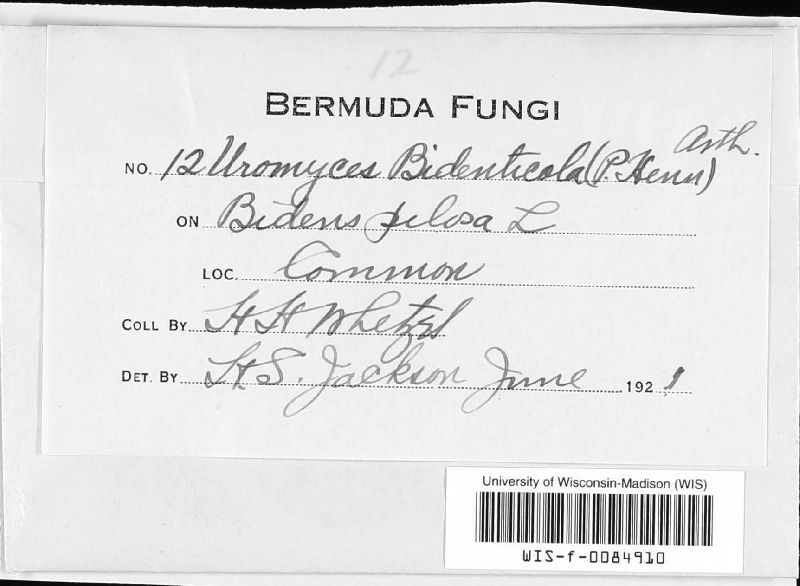 12
BERMUDA FUNGI
NO. 12 Uromyces Bidenticola (P. Henn) Arth.
ON Bidens pilosa L
LOC. Common
COLL BY H H Whetzel
DET. BY H. S. Jackson June 1921
University of Wisconsin-Madison (WIS)
WIS-f-0084910